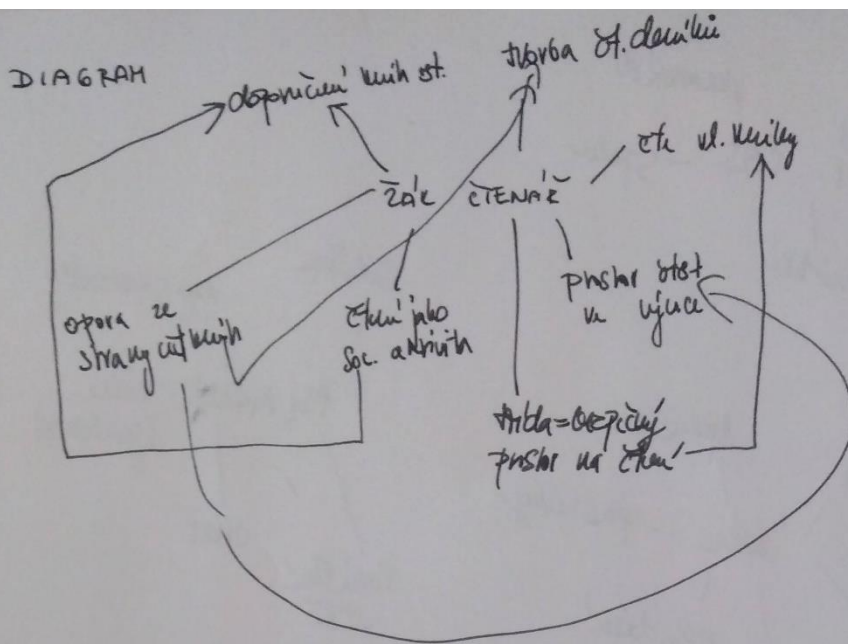 DIAGRAM
doporučení knih st.
tvorba čt. deníků
ŽÁK
ČTENÁŘ
čte vl. knihy
opora ze
strany
čtení jako
soc. aktivita
prostor číst
ve výuce
třída = bezpečný
prostor na čtení